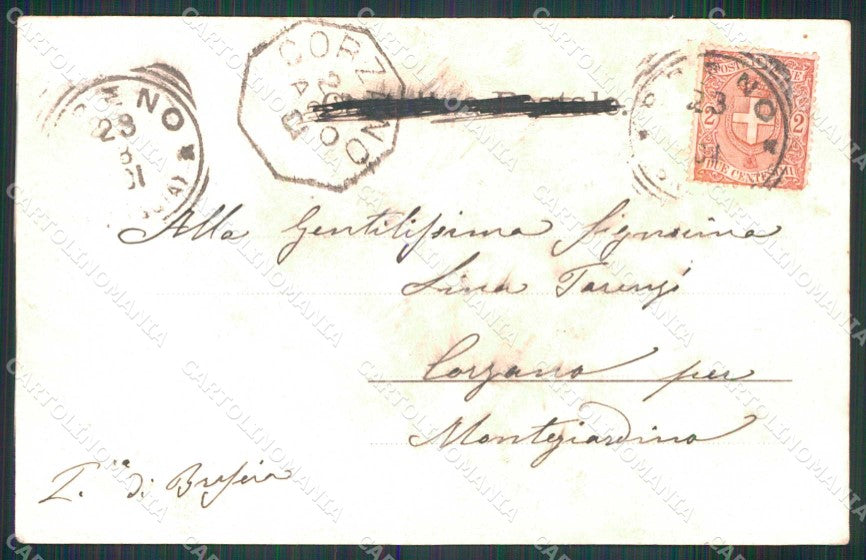 CORZANO
Cartolina Postale.
POSTE ITALIANE
2 2
DUE CENTESIMI
23
01
Alla Gentilissima Signorina
Lina Tarenzi
Corzano per
Montegiardino
P.cia di Brescia
CARTOLINOMANIA